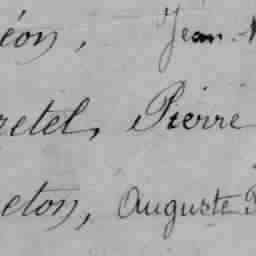 éon, Jean-
retel, Pierre
eton, Auguste